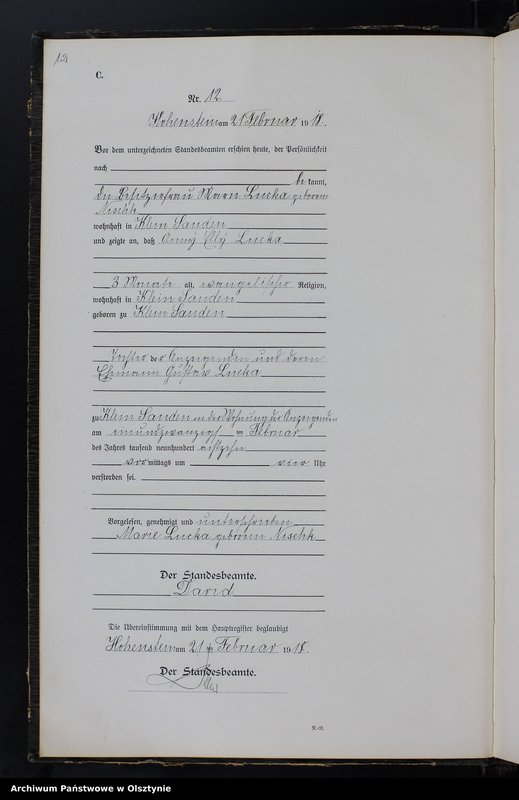 12
C.
Nr. 12.
Hohenstein am 21 Februar 1918.
Vor dem unterzeichneten Standesbeamten erschien heute, der Persönlichkeit
nach
be kannt,
die Besitzerfrau Lucka geborene
Nischk
wohnhaft in Klein Sanden
und zeigte an, daß Lucka
3 Monate alt, evangelischer Religion,
wohnhaft in Klein Sanden
geboren zu Klein Sanden
Tochter der Anzeigenden und deren
Ehemann Gustav Lucka
zu Klein Sanden in der Wohnung der Anzeigenden
am einundzwanzigsten Februar
des Jahres tausend neunhundert achtzehn
vor mittags um vier Uhr
verstorben sei.
Vorgelesen, genehmigt und unterschrieben
Marie Lucka geborene Nischk
Der Standesbeamte.
David
Die Übereinstimmung mit dem Hauptregister beglaubigt
Hohenstein am 21 Februar 1918.
Der Standesbeamte.
Archiwum Państwowe w Olsztynie